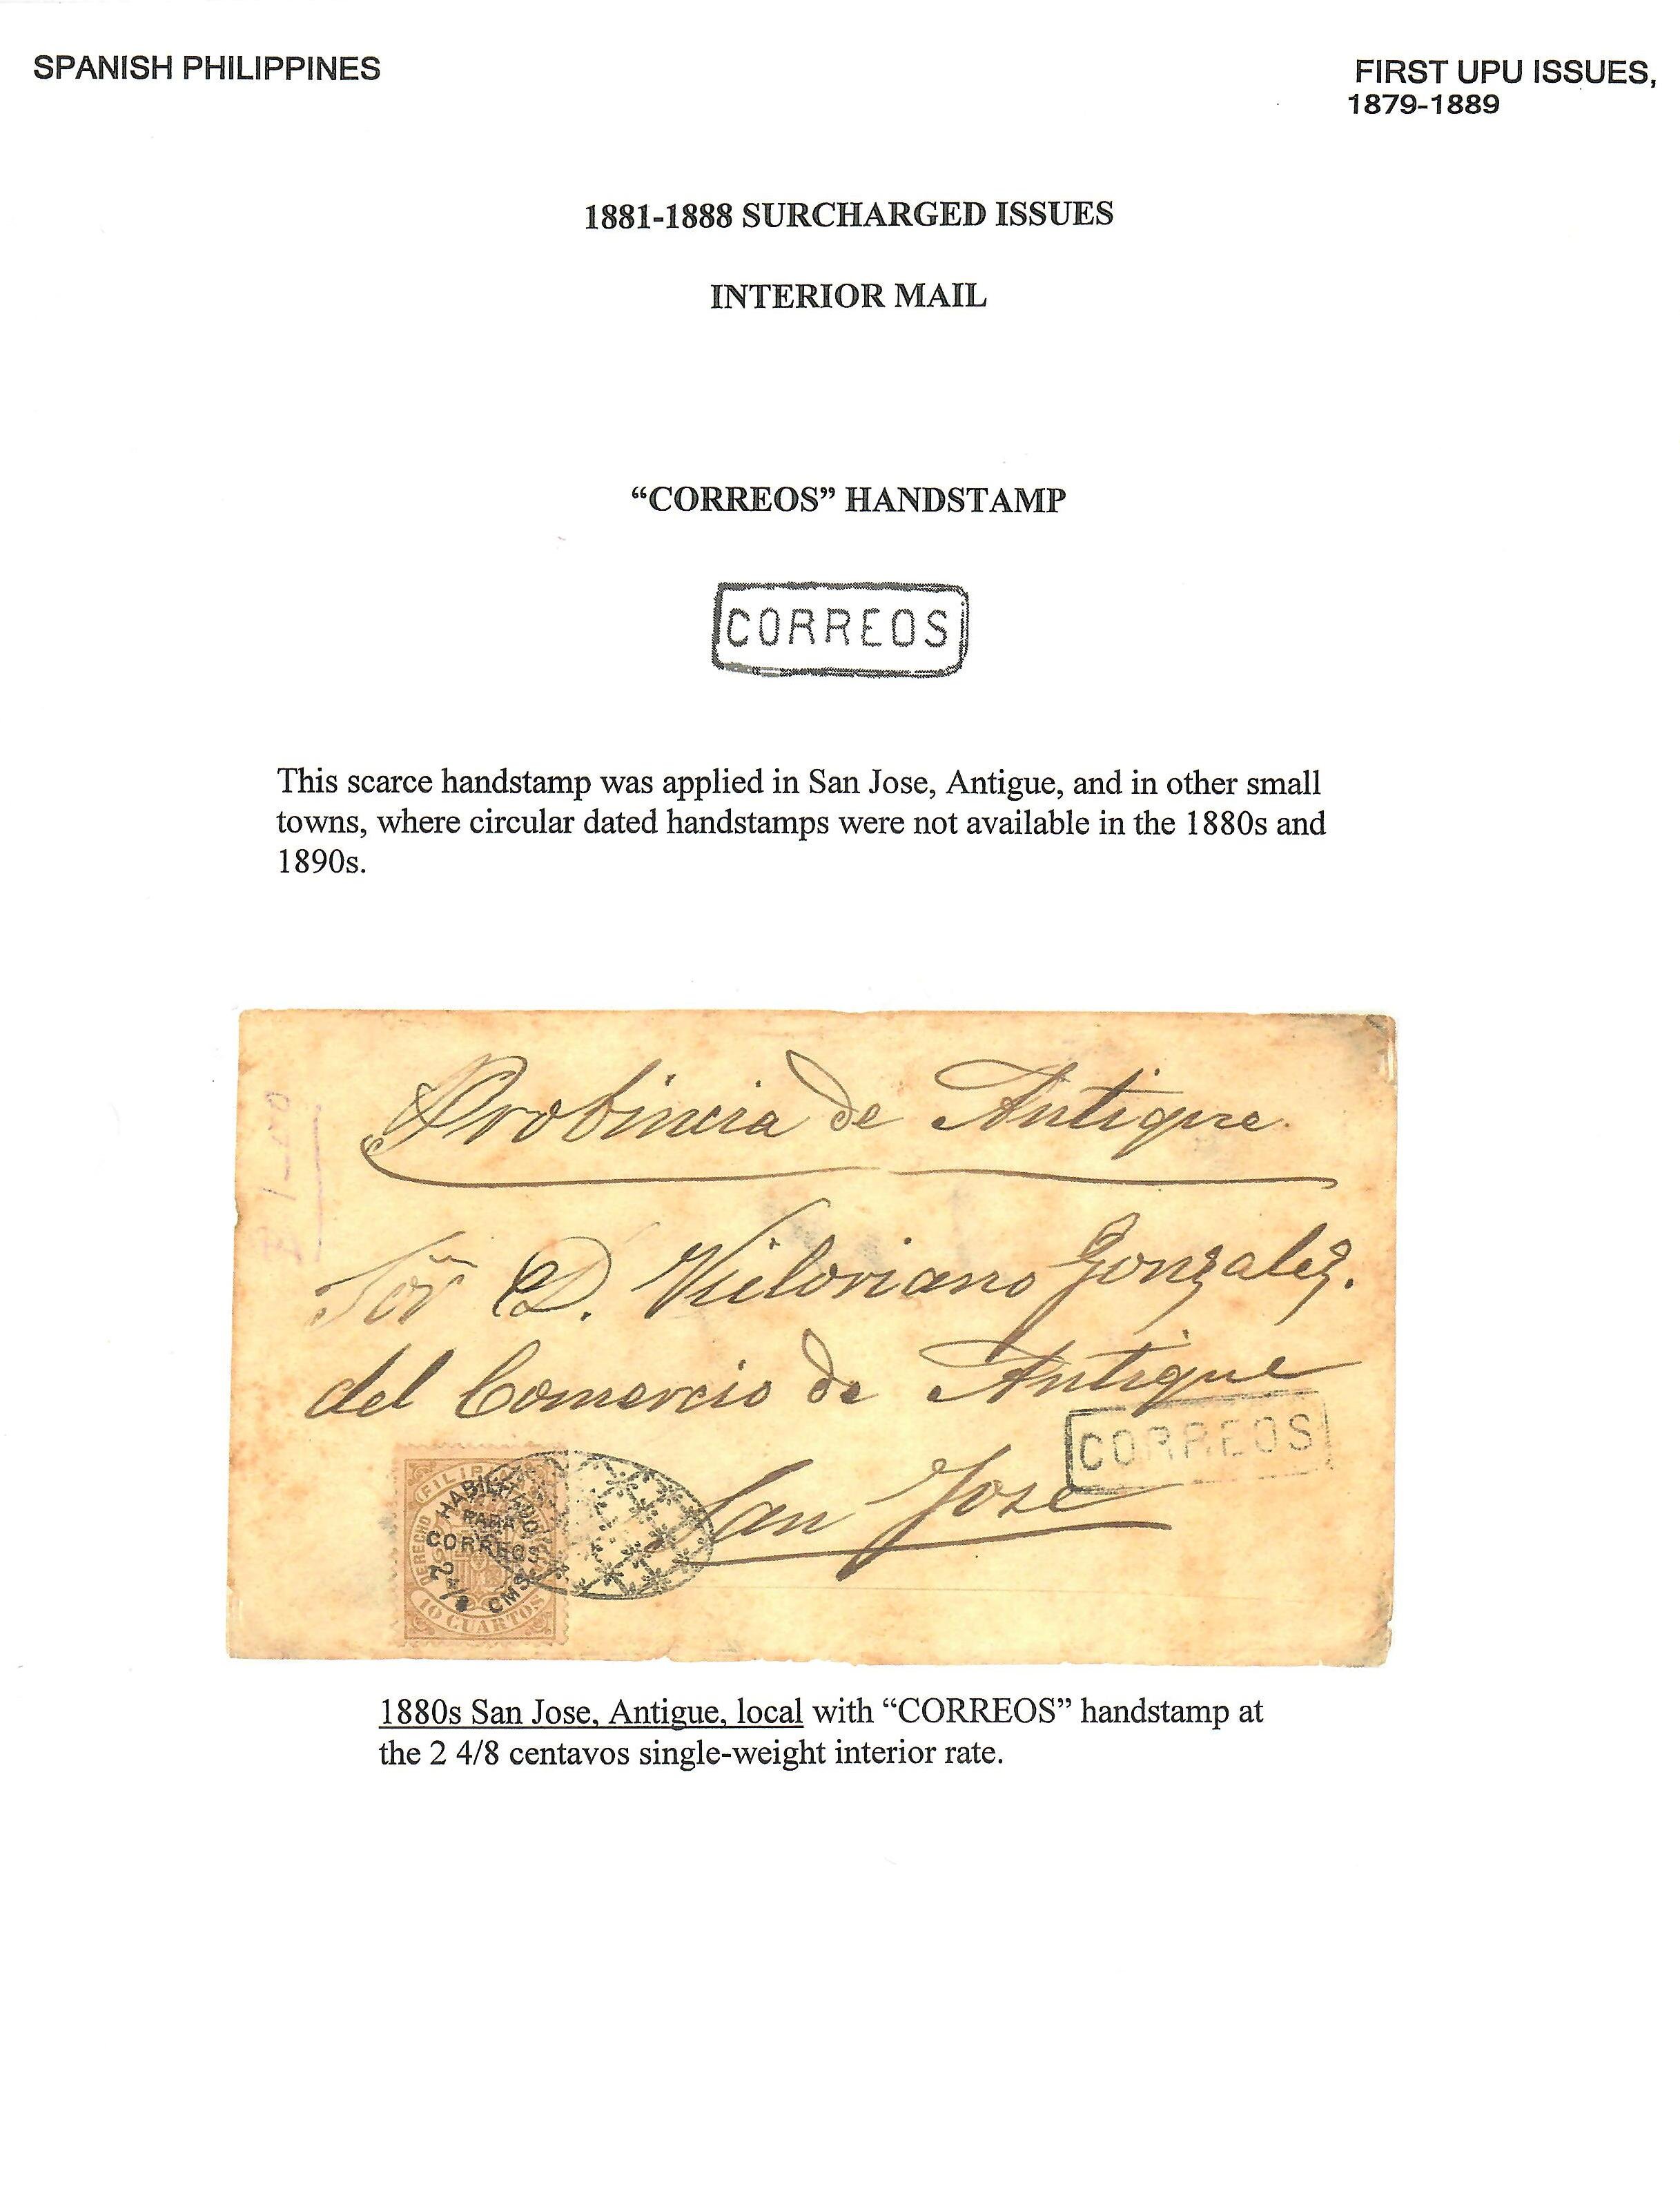 SPANISH PHILIPPINES
FIRST UPU ISSUES,
1879-1889
1881-1888 SURCHARGED ISSUES
INTERIOR MAIL
“CORREOS” HANDSTAMP
CORREOS
This scarce handstamp was applied in San Jose, Antigue, and in other small
towns, where circular dated handstamps were not available in the 1880s and
1890s.
Provincia de Antique.
Sor̃ D. Victoriano Gonzalez.
del Comercio de Antique
CORREOS
San Jose
HABILITADO
PARA
CORREOS
2 4/8 CMS
DERECHO
10 CUARTOS
1880s San Jose, Antigue, local with “CORREOS” handstamp at
the 2 4/8 centavos single-weight interior rate.